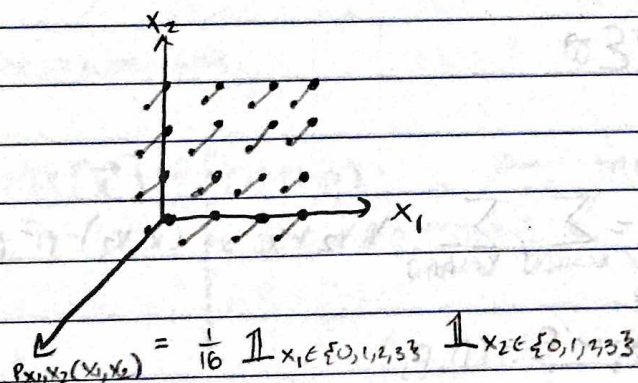 X₂
X₁
P_{X₁,X₂}(x₁,x₂) = 1/16 𝟙_{x₁∈{0,1,2,3}} 𝟙_{x₂∈{0,1,2,3}}